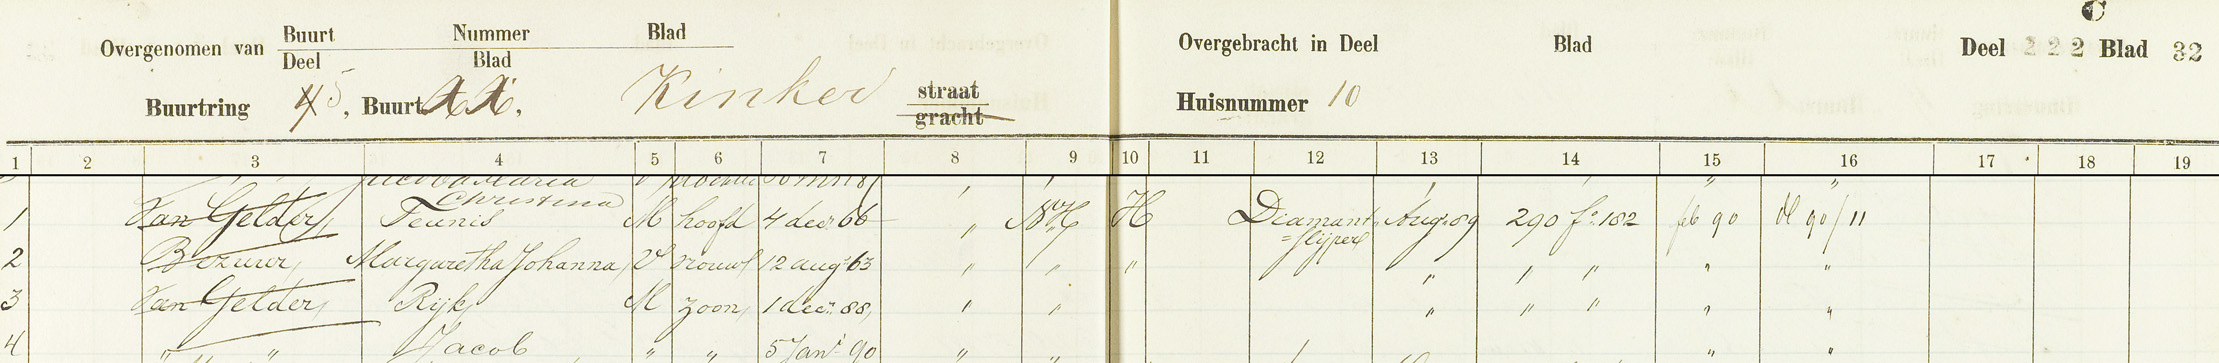 C
Overgenomen van Buurt Nummer Blad
Deel Blad
Overgebracht in Deel Blad Deel 222 Blad 32
Buurtring 5, Buurt XX, Kinker straat
gracht
Huisnummer 10
1 2 3 4 5 6 7 8 9 10 11 12 13 14 15 16 17 18 19
Jacoba Maria
Christina
1 Van Gelder, Teunis M hoofd 4 decr 66 " NH H Diamant Aug. 89 290 fo 182 feb 90 Dl 90/11
=slijper
2 Bezuur, Margaretha Johanna, V vrouw 12 augt 63 " " " " " " " "
3 Van Gelder, Rijk, M zoon, 1 decr 88, " " " " " " "
4 " " Jacob " " 5 Jani 90 " " " "